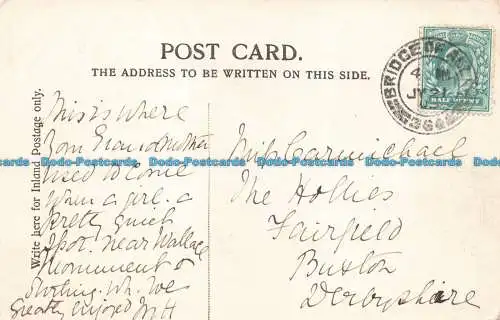 POST CARD.
THE ADDRESS TO BE WRITTEN ON THIS SIDE.
Write here for Inland Postage only.
BRIDGE OF
JY 21
364
HALFPENNY
This is where
your Grandmother
used to come
when a girl. a
pretty quiet
spot. near Wallace
Monument &
Stirling. wh. we
greatly enjoyed MH
Miss Carmichael
The Hollies
Fairfield
Buxton
Derbyshire
Postcards Postcards Postcards Postcards Postcards Postcards Postcards